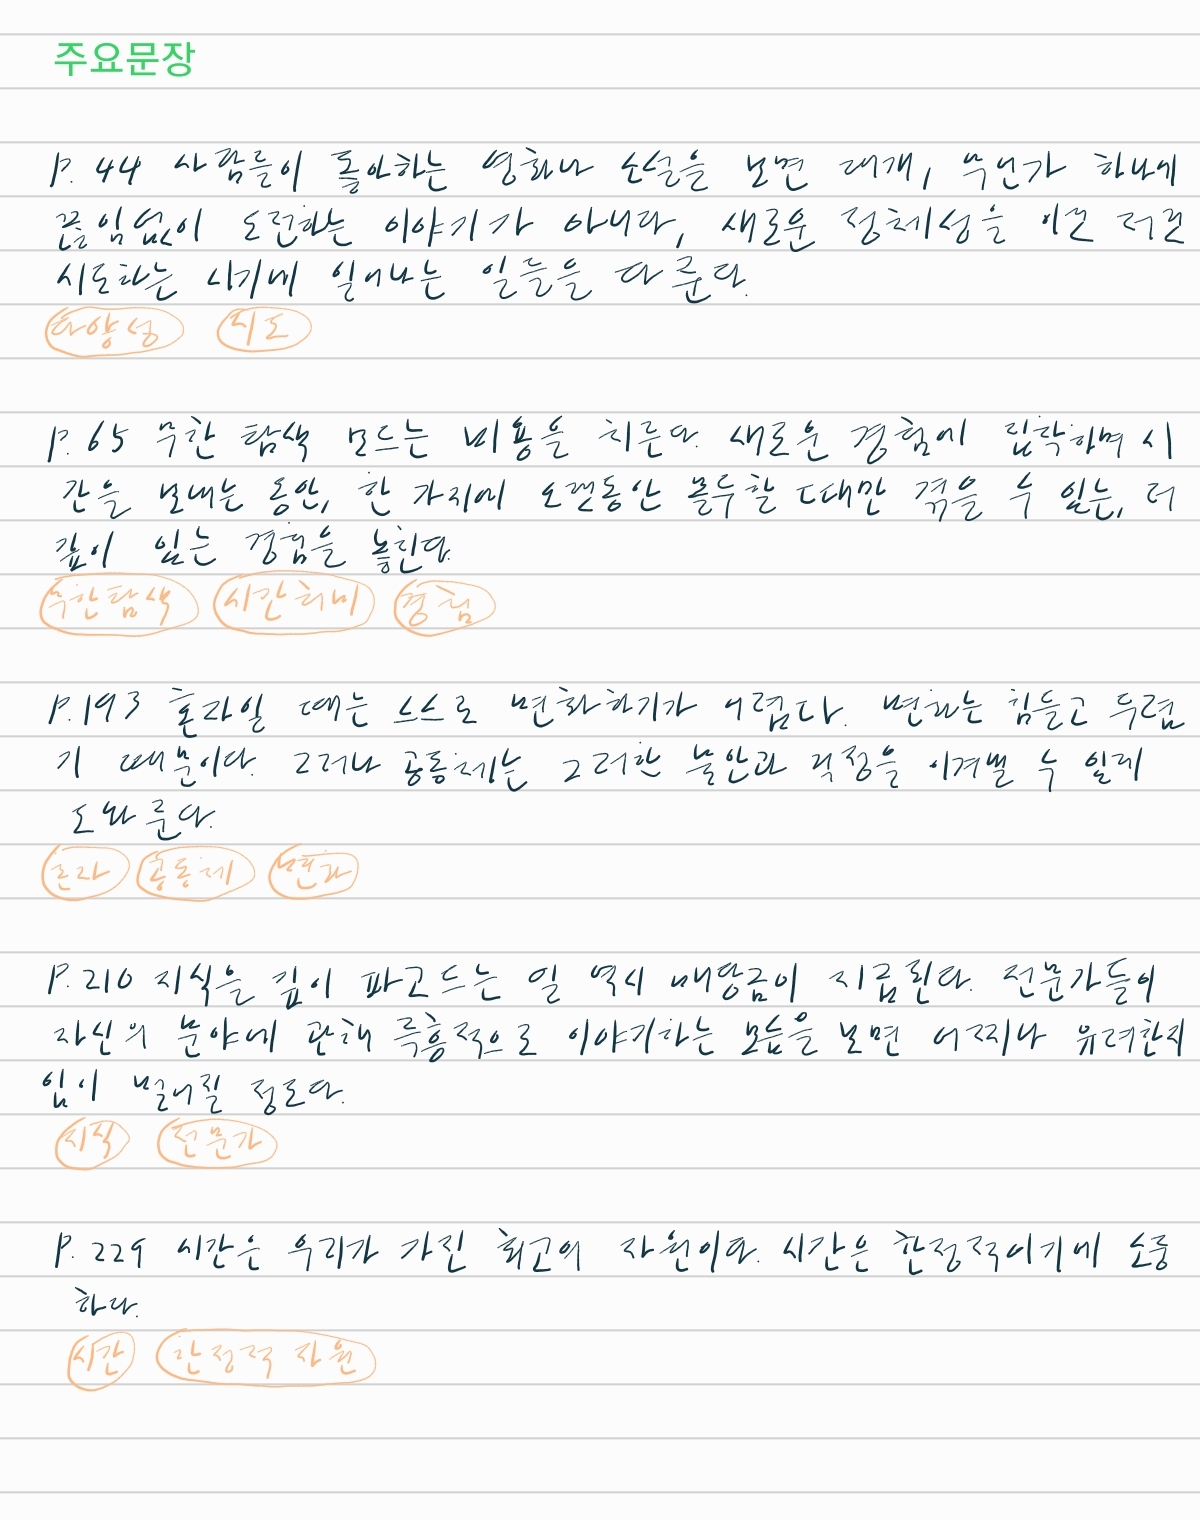 주요문장
P. 44 사람들이 좋아하는 영화나 소설을 보면 대개, 무언가 하나에
끊임없이 도전하는 이야기가 아니다, 새로운 정체성을 이모 저모
시도하는 시기에 일어나는 일들을 다룬다.
다양성 시도
P. 65 무한 탐색 모드는 비용을 치른다. 새로운 경험에 집착하며 시
간을 보내는 동안, 한 가지에 오랫동안 몰두할 때만 겪을 수 있는, 더
깊이 있는 경험을 놓친다.
무한탐색 시간허비 경험
P. 193 혼자일 때는 스스로 변화하기가 어렵다. 변화는 힘들고 두렵
기 때문이다. 그러나 공동체는 그러한 불안과 걱정을 이겨낼 수 있게
도와준다.
혼자 공동체 변화
P. 210 지식을 깊이 파고드는 일 역시 배당금이 지급된다. 전문가들이
자신의 분야에 관해 즉흥적으로 이야기하는 모습을 보면 어찌나 유려한지
입이 벌어질 정도다.
지식 전문가
P. 229 시간은 우리가 가진 최고의 자원이다. 시간은 한정적이기에 소중
하다.
시간 한정적 자원